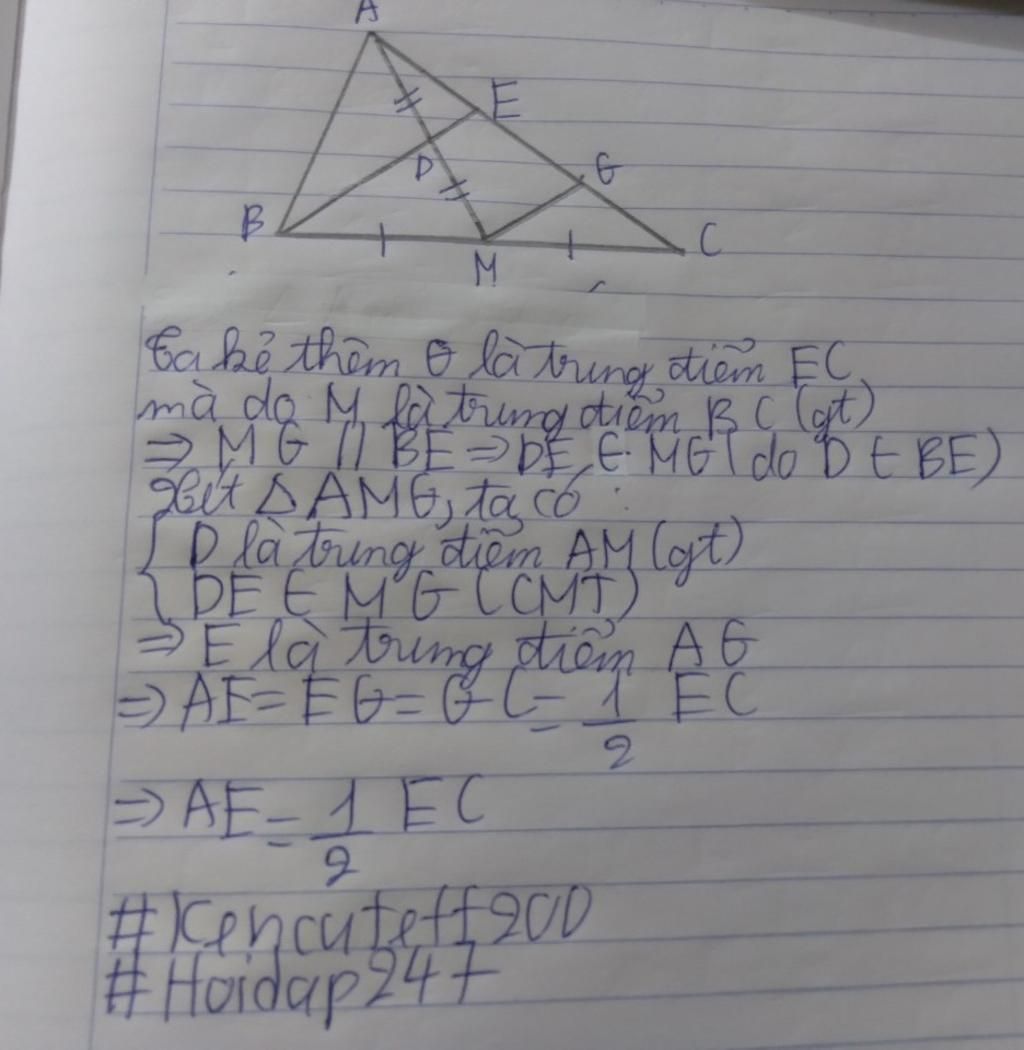 A
E
D
G
B
M
C
Ta kẻ thêm G là trung điểm EC
mà do M là trung điểm BC (gt)
⇒ MG // BE ⇒ DE ∈ MG (do D ∈ BE)
Xét △ AMG, ta có :
{ D là trung điểm AM (gt)
{ DE ∈ MG (CMT)
⇒ E là trung điểm AG
⇒ AE = EG = GC = 1/2 EC
⇒ AE = 1/2 EC
#Kencuteff900
#Hoidap247